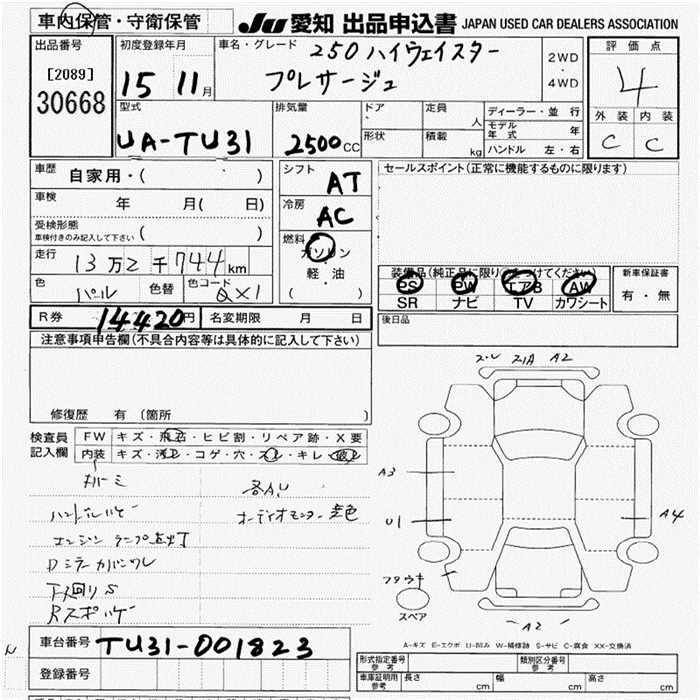 車内保管・守衛保管
JU 愛知 出品申込書 JAPAN USED CAR DEALERS ASSOCIATION
出品番号
[2089]
30668
初度登録年月
15 11月
車名・グレード
250 ハイウェイスター
プレサージュ
2WD
・
4WD
評価点
4
外装 内装
C C
型式
UA-TU31
排気量
2500CC
ドア
形状
定員 人
積載 kg
ディーラー・並行
モデル年式 年
ハンドル 左・右
車歴
自家用・( )
車検 年 月( 日)
受検形態
車検付きのみ記入して下さい ( )
走行 13万2千744km
色 パール 色替 色コード QX1
シフト AT
冷房 AC
燃料 ガソリン
・
軽・油
( )
セールスポイント(正常に機能するものに限ります)
装備品(純正品に限り○をつけてください)
PS PW エアB AW
SR ナビ TV カワシート
新車保証書
有・無
R券 14420円 名変期限 月 日
後日品
注意事項申告欄(不具合内容等は具体的に記入して下さい)
修復歴 有 (箇所 )
検査員記入欄
FW キズ・飛石・ヒビ割・リペア跡・X要
内装 キズ・汚レ・コゲ・穴・スレ・キレ・破レ
各A,U
オーディオモニター 変色
エンジンランプ点灯
Dミラーカバーワレ
下回りS
A2
A3
U1
A4
スペア
A2
A-キズ E-エクボ U-凹み W-補修跡 S-サビ C-腐食 XX-交換済
車台番号 TU31-001823
登録番号
形式指定番号 参考
類別区分番号 参考
車庫証明用 参考 長さ cm 幅 cm 高さ cm